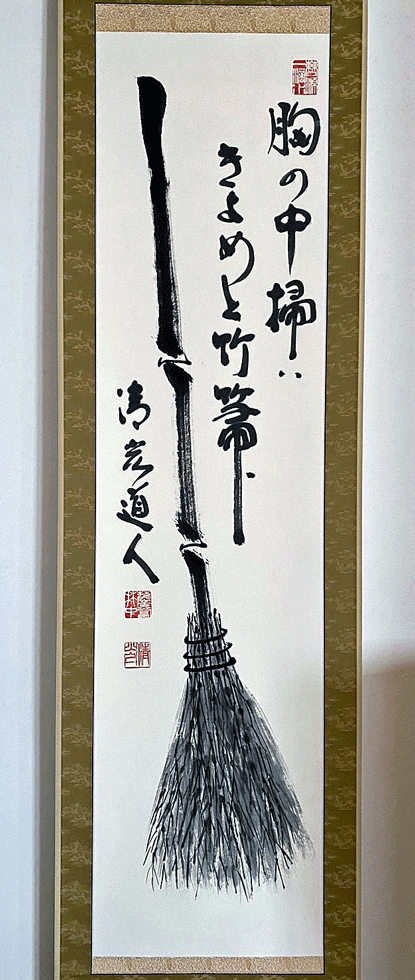 胸の中掃い
きよめと竹箒
清岩道人